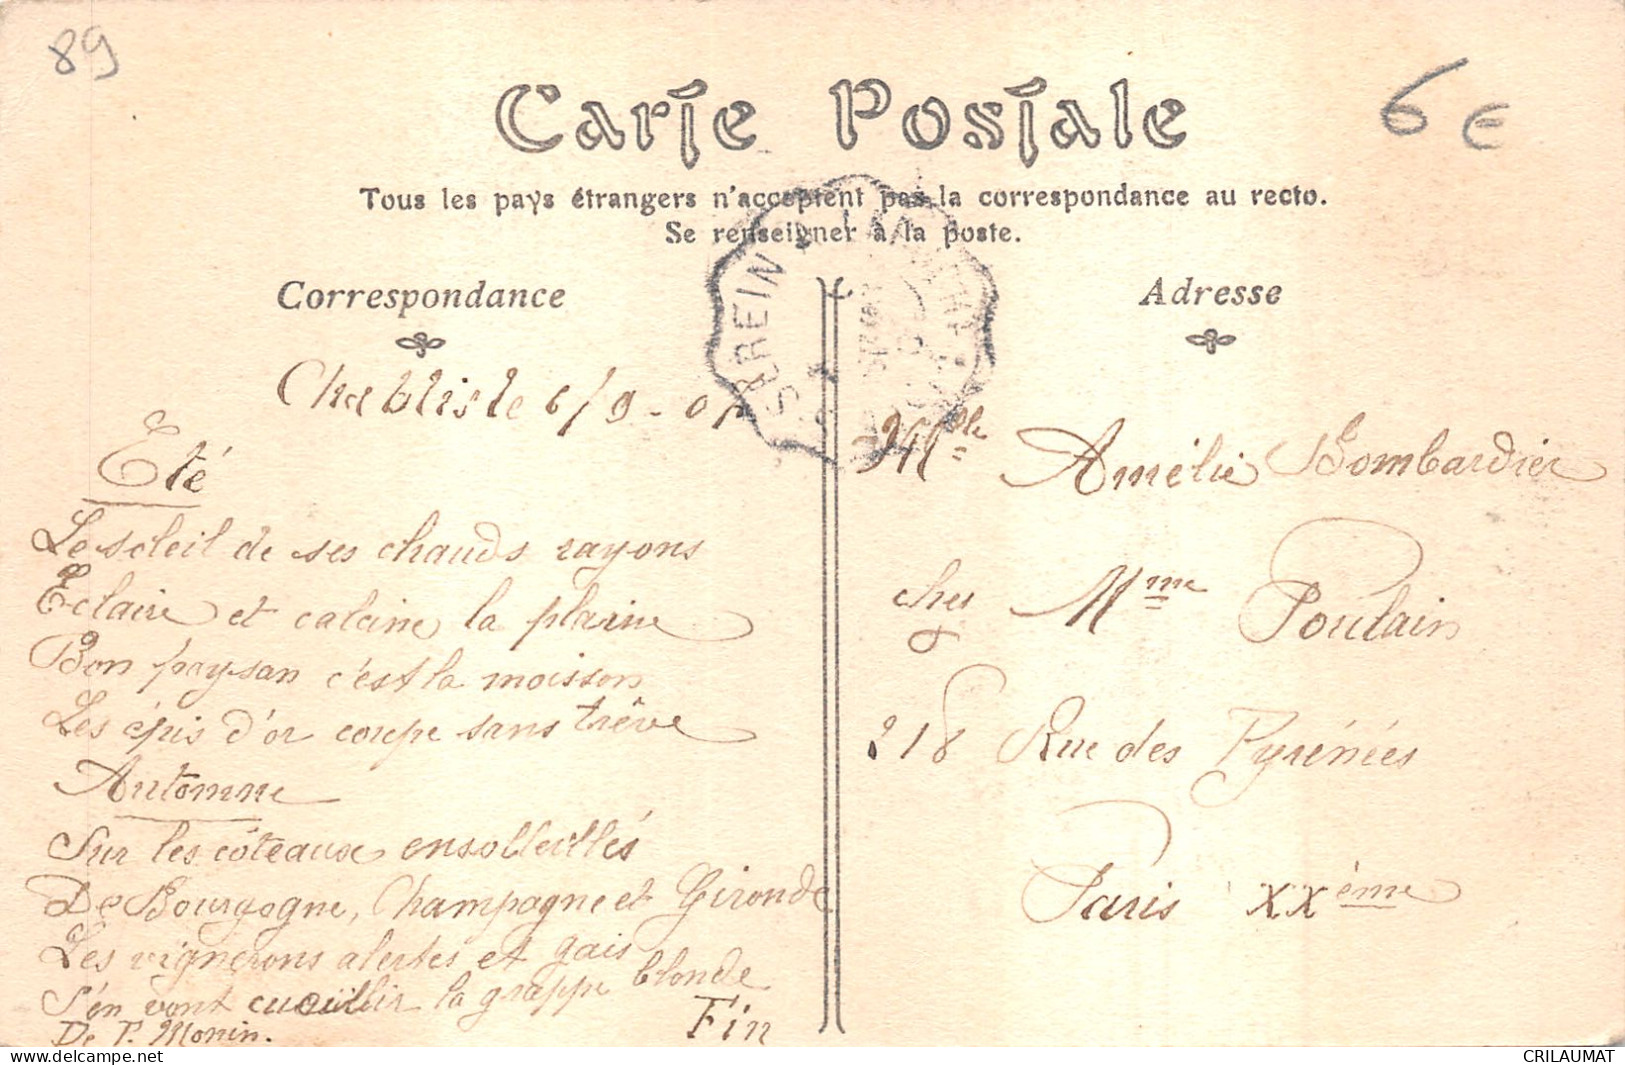 89
6 €
Carte Postale
Tous les pays étrangers n'acceptent pas la correspondance au recto.
Se renseigner à la poste.
Correspondance
Chablis le 6/9-07
Eté
Le soleil de ses chauds rayons
Eclaire et calcine la plaine
Bon paysan c'est la moisson
Les épis d'or coupe sans trêve
Automne
Sur les côteaux ensolleillés
De Bourgogne, Champagne et Gironde
Les vignerons alertes et gais
S'en vont cueuillir la grappe blonde
De P. Monin.
Fin
SEREIN
Adresse
Mlle Amélie Bombardier
chez Mme Poulain
218 Rue des Pyrénées
Paris XXème
delcampe.net
CRILAUMAT